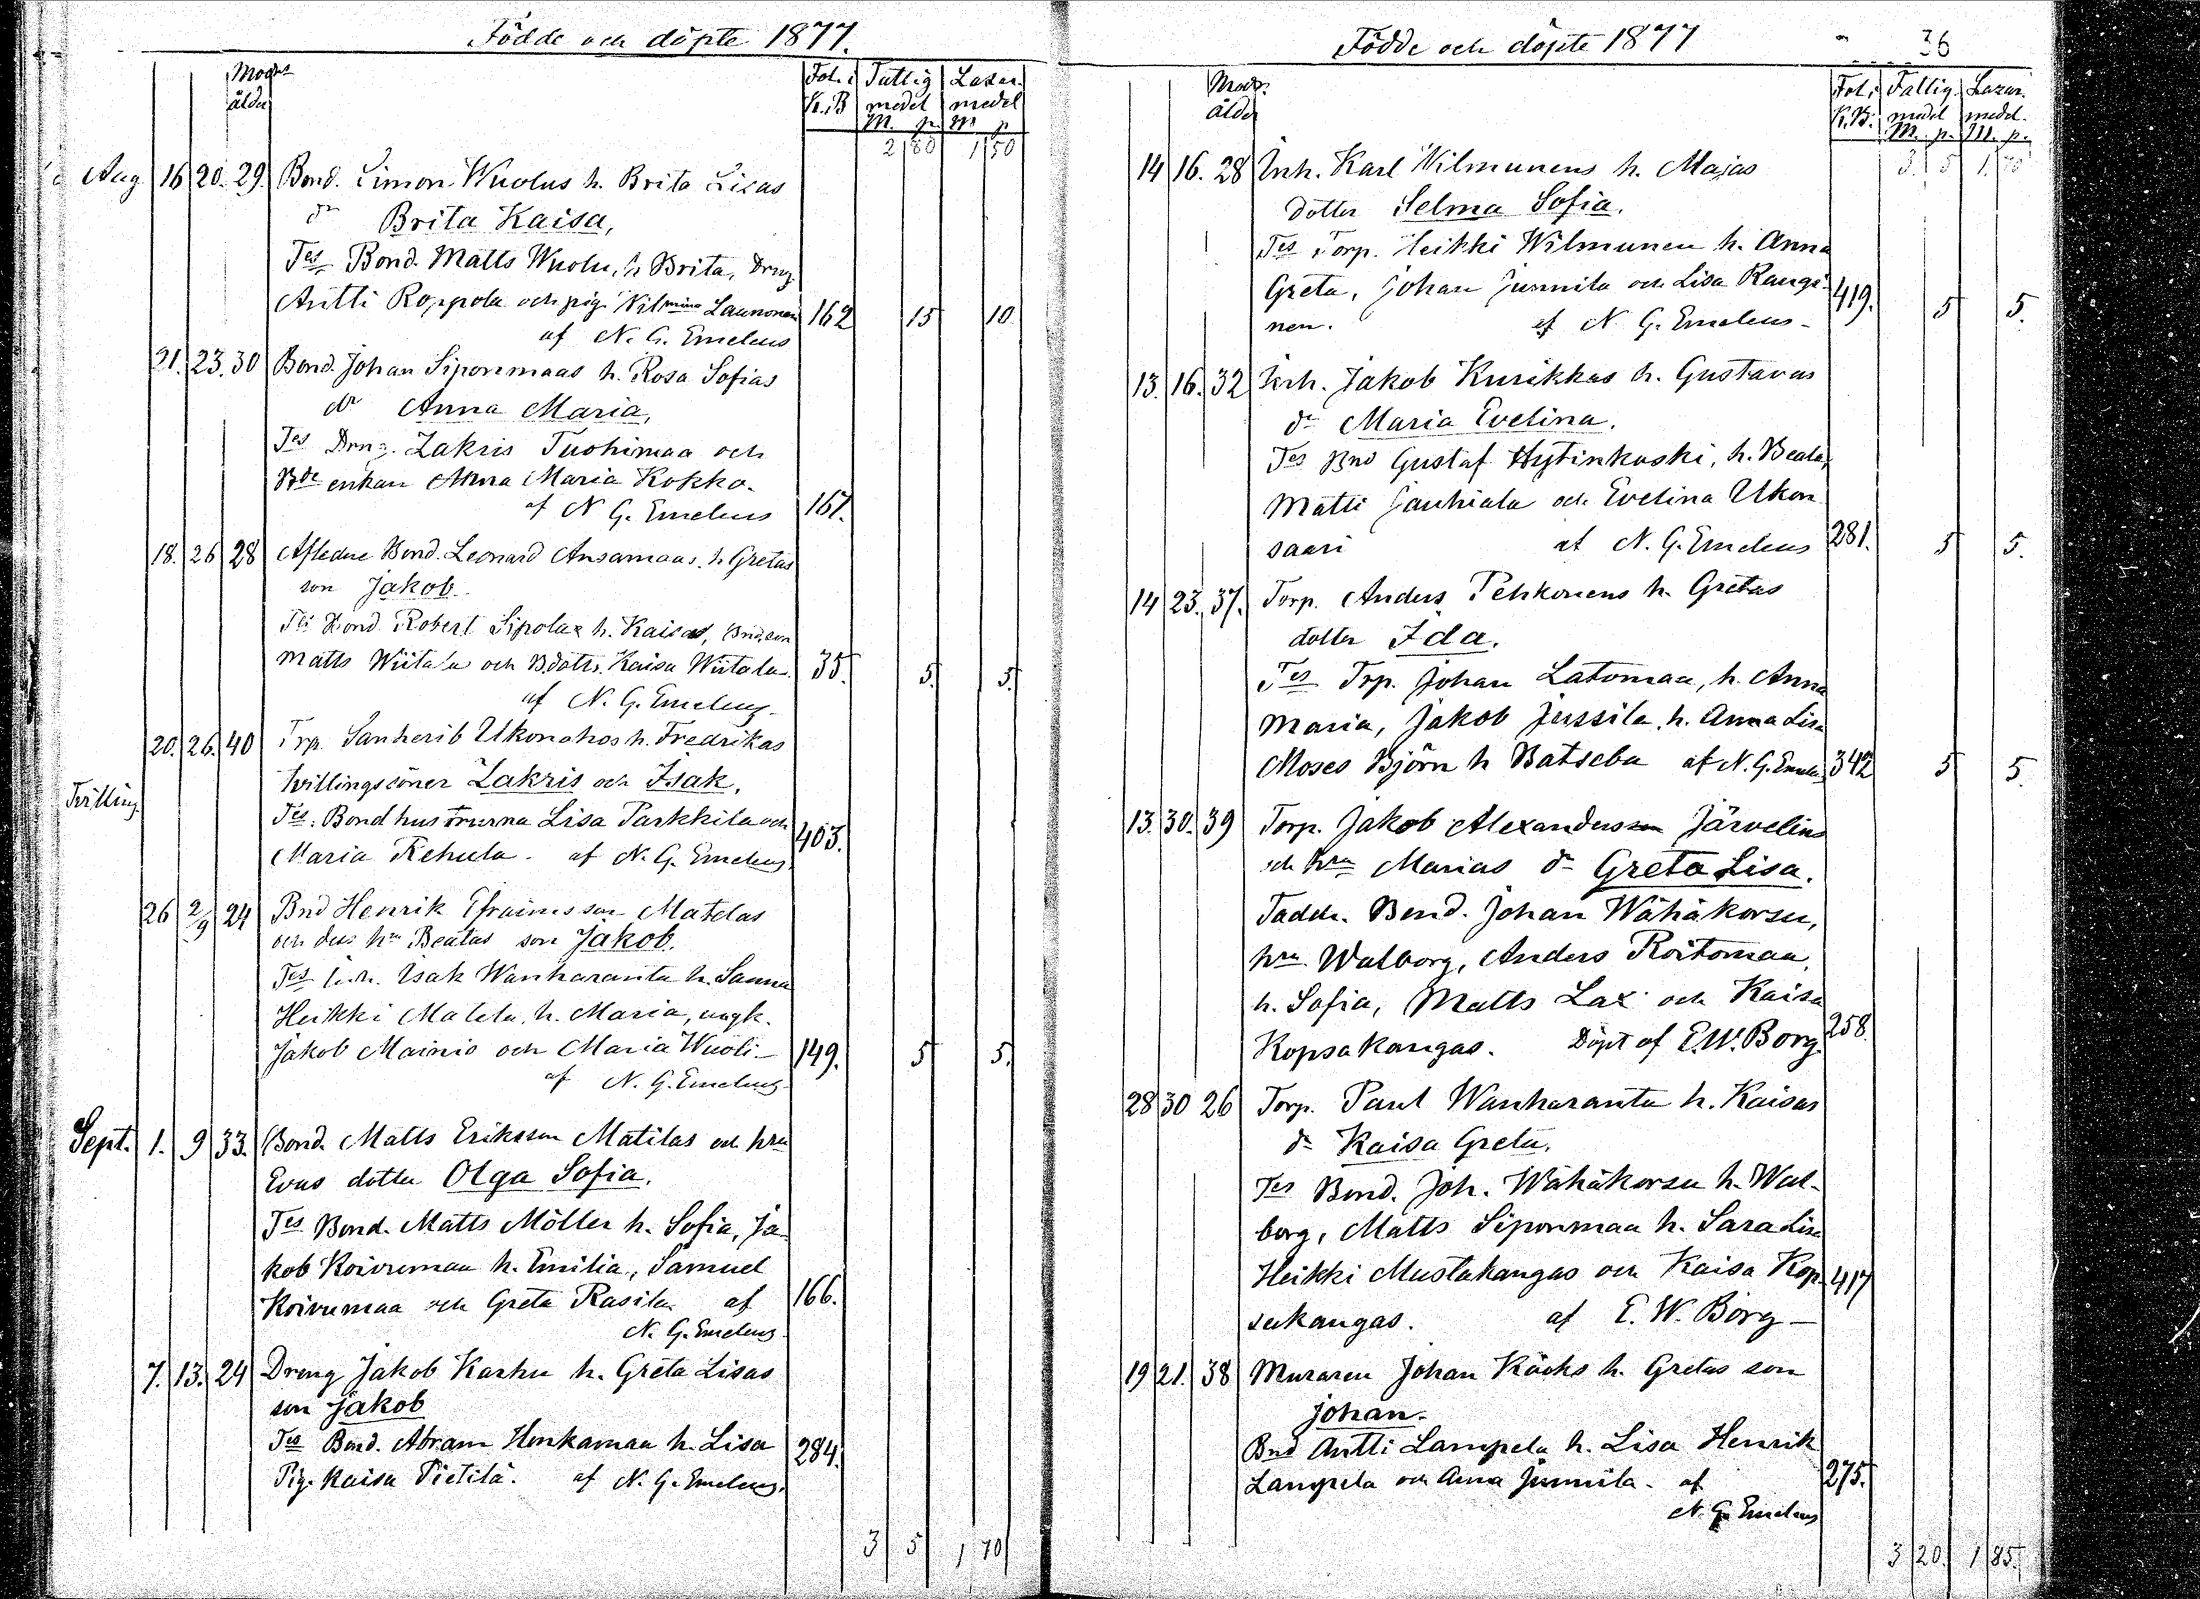 Födde och döpte 1877.
Moders ålder
Fol. i K.B
Fattig medel M. p.
Lazar. medel M p
2 80 1 50
Aug 16 20. 29. Bond. Simon Wuolus h. Brita Lisas
dr Brita Kaisa,
Tes Bond. Matts Wuolu, h Brita, Dreng
Antti Roppola och pig. Vilmina Launonen 162 15 10
af N. G. Emeleus
21. 23. 30 Bond. Johan Siponmaas h. Rosa Sofias
dr Anna Maria,
Tes Drng. Zakris Tuohimaa och
Bde enkan Anna Maria Kokko.
af N G. Emeleus 167.
18. 26 28 Afledne Bond. Leonard Ansamaas h Gretas
son Jakob.
Tes Bond. Robert Sipola h. Kaisa, Bndson
Matts Wiitala och B.dottr. Kaisa Wiitala 35. 5. 5.
af N. G. Emeleus
20. 26. 40 Trp. Sanherib Ukonahos h. Fredrikas
tvillingsöner Zakris och Isak.
Tvilling.
Tes. Bondhustrurna Lisa Parkkila och
Maria Rehula. af N. G. Emeleus 403.
26 2/9 24 Bnd Henrik Efraimsson Matelas
och dess hru Beatas son Jakob.
Tes Inh. Isak Wanharanta h. Sanna
Heikki Matela, h. Maria, ungk.
Jakob Mainio och Maria Wuoli 149. 5 5.
af N. G. Emeleus
Sept. 1. 9 33. Bond. Matts Eriksson Matilas och hru
Evas dotter Olga Sofia.
Tes Bond. Matts Möller h. Sofia, Ja-
kob Koivumaa h. Emilia, Samuel
Koivumaa och Greta Rasila af 166.
N. G. Emeleus
7. 13. 24 Dreng Jakob Karhu h. Greta Lisas
son Jakob
Tes Bond. Abram Honkamaa h. Lisa 284.
Pig. Kaisa Pietilä. af N. G. Emeleus.
3 5 1 70
Födde och döpte 1877 36
Modr. ålder
Fol. i K.B.
Fattig. medel M. p.
Lazar. medel. M. p.
3. 5 1. 70
14 16. 28 Inh. Karl Wilmunens h. Majas
dotter Selma Sofia.
Tes Torp. Heikki Wilmunen h. Anna
Greta, Johan Junnila och Lisa Kangi- 419. 5 5.
nen. af N. G. Emeleus
13. 16. 32 Inh. Jakob Kurikkas h. Gustavas
dr Maria Evelina.
Tes Bnd Gustaf Hytinkoski, h. Beata,
Matti Jauhiala och Evelina Ukon
saari af N. G. Emeleus 281. 5 5.
14 23. 37. Torp. Anders Pehkonens h. Gretas
dotter Ida.
Tes Trp. Johan Latomaa, h. Anna
Maria, Jakob Jussila h. Anna Lisa
Moses Björn h Batseba af N. G. Emeleus 342 5 5.
13. 30. 39 Torp. Jakob Alexandersson Järvelins
och hru Marias dr Greta Lisa.
Faddr. Bond. Johan Wähäkorsu,
hru Walborg, Anders Roitomaa,
h. Sofia, Matts Lax och Kaisa
Kopsakangas. Döpt af E.W. Borg. 258.
28 30 26 Torp. Paul Wanharanta h. Kaisas
dr Kaisa Greta.
Tes Bond. Joh. Wähäkorsu h. Wal-
borg, Matts Siponmaa h. Sara Lisa
Heikki Mustakangas och Kaisa Kop- 417
sakangas. af E. W. Borg
19 21. 38 Muraren Johan Käcks h. Gretas son
Johan.
Bnd Antti Lampela h. Lisa Henrik
Lampela och Anna Junnila. af 275.
N. G. Emeleus
3 20. 1 85.